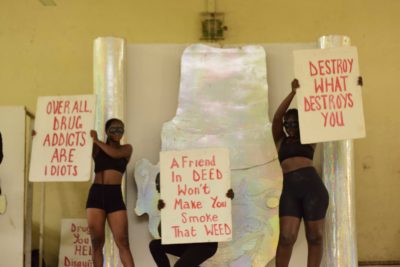 OVERALL,
DRUG
ADDICTS
ARE
IDIOTS
A Friend
In DEED
Won't
Make You
Smoke
That WEED
DESTROY
WHAT
DESTROYS
YOU
Drug
You
HE